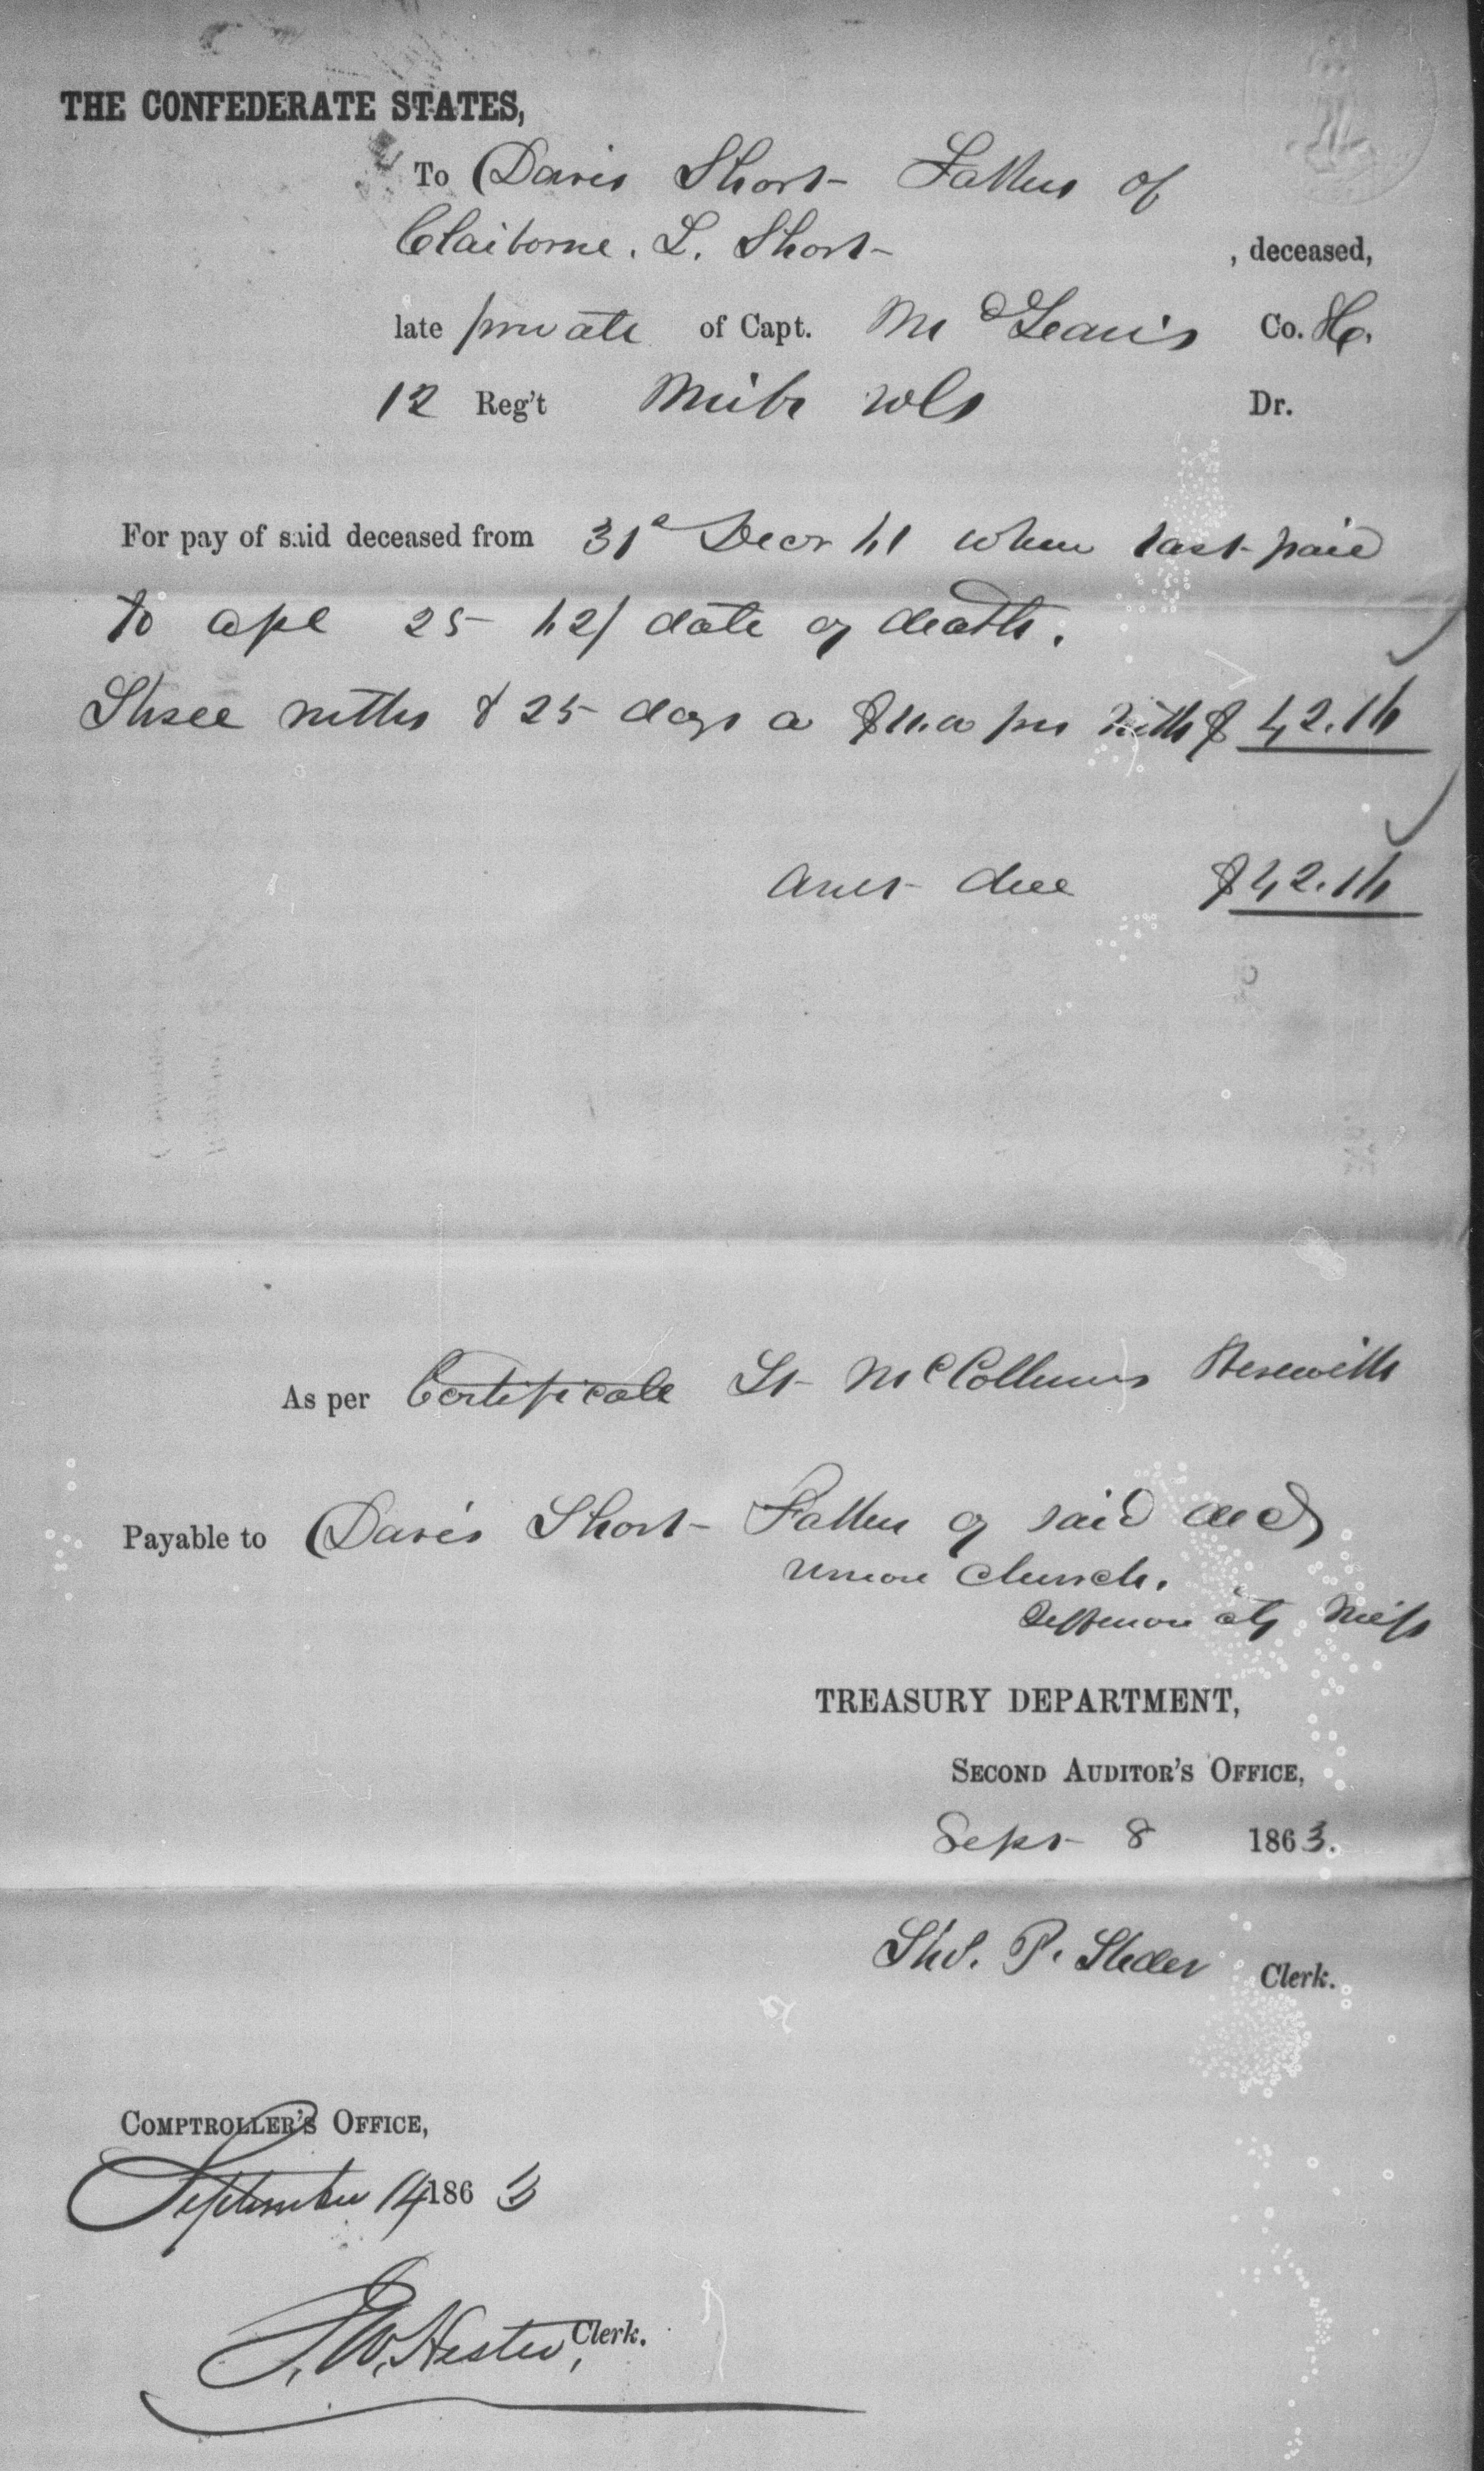 THE CONFEDERATE STATES,
To Davis Short Father of
Claiborne. L. Short , deceased,
late private of Capt. McLean's Co. H.
12 Reg't Miss Vols Dr.
For pay of said deceased from 31st Decr 61 when last paid
to apl 25 62/ date of death.
Three mths & 25 days a $11.00 per mth $ 42.16
amt due $42.16
As per Certificate Lt McCollums Herewith
Payable to Davis Short Father of said decd
Union Church.
Jefferson cty Miss
TREASURY DEPARTMENT,
SECOND AUDITOR'S OFFICE,
Sept 8 1863.
P. Clerk.
COMPTROLLER'S OFFICE,
September 14 1863
W. Hester, Clerk.